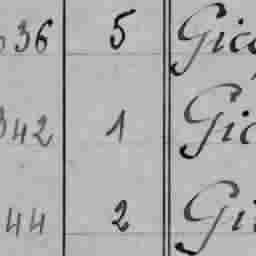 36 5 Gic
342 1 Gic
44 2 Gi